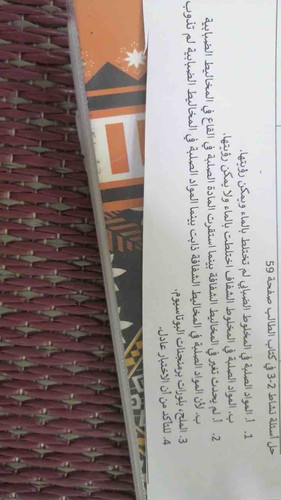 حل أسئلة نشاط 2-3 في كتاب الطالب صفحة 59
1. أ. المواد الصلبة في المخلوط الضبابي لم تختلط بالماء ويمكن رؤيتها.
ب. المواد الصلبة في المخلوط الشفاف اختلطت بالماء ولا يمكن رؤيتها.
2. أ. لم يحدث تغير في المخاليط الشفافة بينما استقرت المادة الصلبة في القاع في المخاليط الضبابية
ب. لأن المواد الصلبة في المخاليط الشفافة ذابت بينما المواد الصلبة في المخاليط الضبابية لم تذوب
3. الملح، بلورات برمنجنات البوتاسيوم.
4. للتأكد من أن الاختبار عادل.